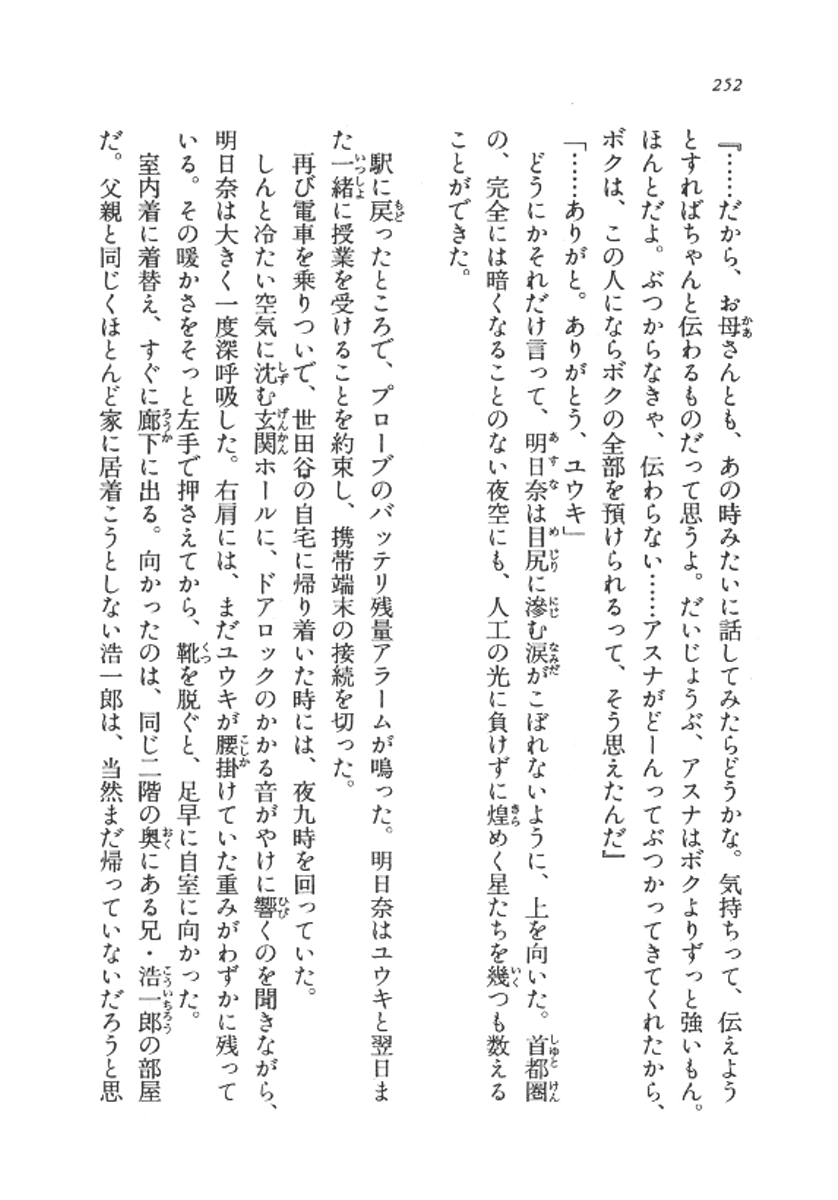 252
『……だから、お母さんとも、あの時みたいに話してみたらどうかな。気持ちって、伝えよう
とすればちゃんと伝わるものだって思うよ。だいじょうぶ、アスナはボクよりずっと強いもん。
ほんとだよ。ぶつからなきゃ、伝わらない……アスナがどーんってぶつかってきてくれたから、
ボクは、この人にならボクの全部を預けられるって、そう思えたんだ』
「……ありがと。ありがとう、ユウキ」
どうにかそれだけ言って、明日奈は目尻に滲む涙がこぼれないように、上を向いた。首都圏
の、完全には暗くなることのない夜空にも、人工の光に負けずに煌めく星たちを幾つも数える
ことができた。
駅に戻ったところで、プローブのバッテリ残量アラームが鳴った。明日奈はユウキと翌日ま
た一緒に授業を受けることを約束し、携帯端末の接続を切った。
再び電車を乗りついで、世田谷の自宅に帰り着いた時には、夜九時を回っていた。
しんと冷たい空気に沈む玄関ホールに、ドアロックのかかる音がやけに響くのを聞きながら、
明日奈は大きく一度深呼吸した。右肩には、まだユウキが腰掛けていた重みがわずかに残って
いる。その暖かさをそっと左手で押さえてから、靴を脱ぐと、足早に自室に向かった。
室内着に着替え、すぐに廊下に出る。向かったのは、同じ二階の奥にある兄・浩一郎の部屋
だ。父親と同じくほとんど家に居着こうとしない浩一郎は、当然まだ帰っていないだろうと思